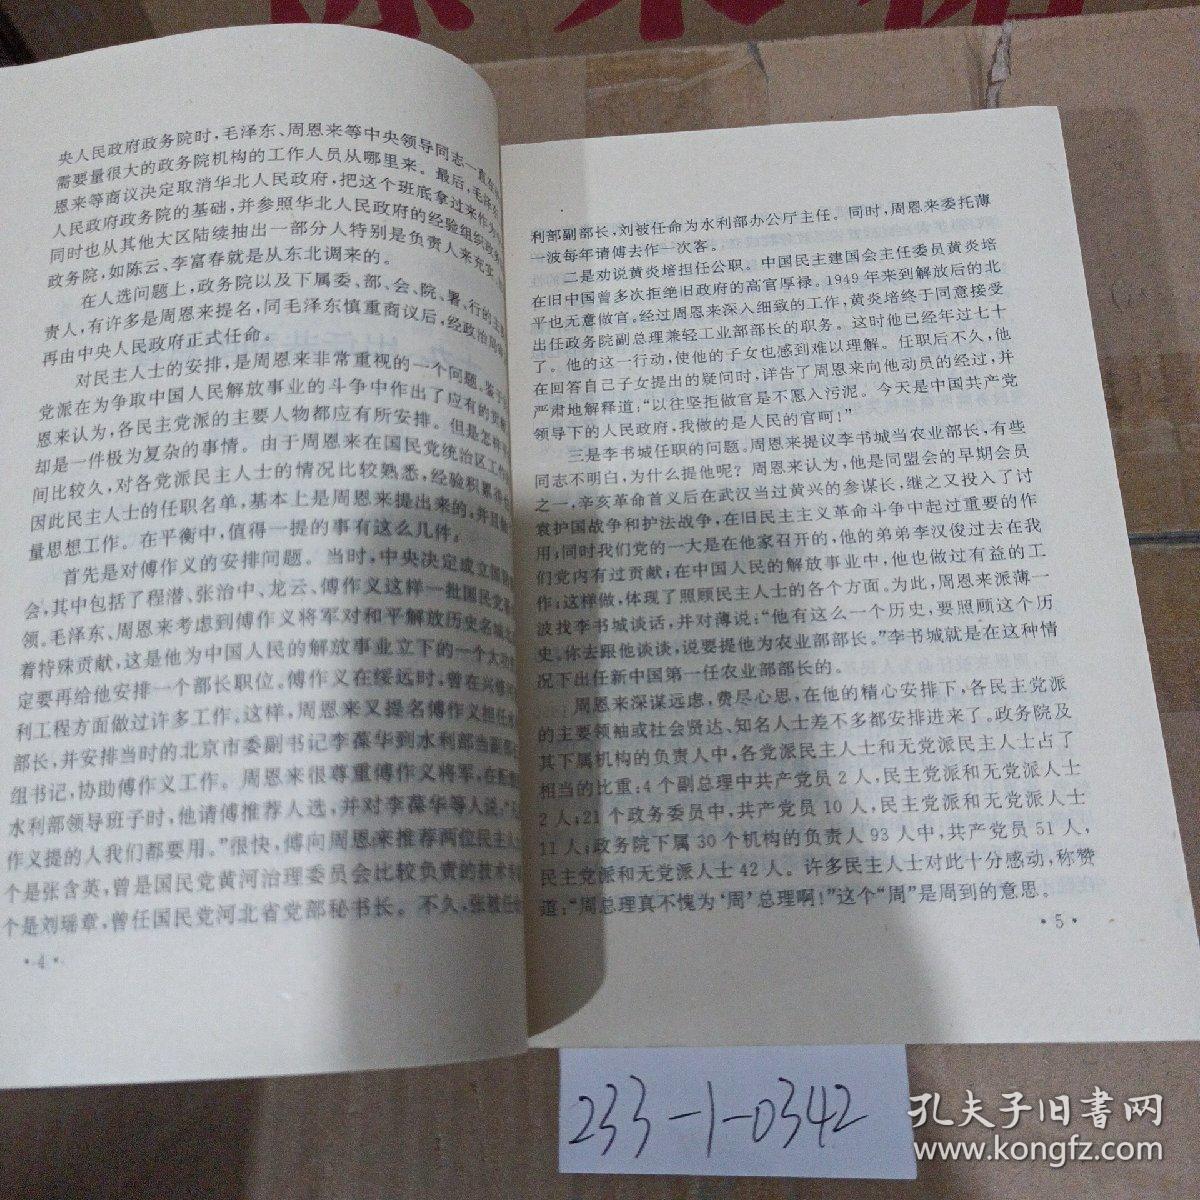 央人民政府政务院时,毛泽东、周恩来等中央领导同志一直在
需要量很大的政务院机构的工作人员从哪里来。最后,毛泽东
恩来等商议决定取消华北人民政府,把这个班底拿过来作为
人民政府政务院的基础,并参照华北人民政府的经验组织政务
同时也从其他大区陆续抽出一部分人特别是负责人来充实
政务院,如陈云、李富春就是从东北调来的。
在人选问题上,政务院以及下属委、部、会、院、署、行的主
责人,有许多是周恩来提名,同毛泽东慎重商议后,经政治局
再由中央人民政府正式任命。
对民主人士的安排,是周恩来非常重视的一个问题。鉴于
党派在为争取中国人民解放事业的斗争中作出了应有的贡献
恩来认为,各民主党派的主要人物都应有所安排。但是怎样
却是一件极为复杂的事情。由于周恩来在国民党统治区工作
间比较久,对各党派民主人士的情况比较熟悉,经验积累得
因此民主人士的任职名单,基本上是周恩来提出来的,并且
量思想工作。在平衡中,值得一提的事有这么几件。
首先是对傅作义的安排问题。当时,中央决定成立国防
会,其中包括了程潜、张治中、龙云、傅作义这样一批国民党
领。毛泽东、周恩来考虑到傅作义将军对和平解放历史名城北
着特殊贡献,这是他为中国人民的解放事业立下的一个大功
定要再给他安排一个部长职位。傅作义在绥远时,曾在兴修
利工程方面做过许多工作。这样,周恩来又提名傅作义担任水
部长,并安排当时的北京市委副书记李葆华到水利部当副部
组书记,协助傅作义工作。周恩来很尊重傅作义将军,在配
水利部领导班子时,他请傅推荐人选,并对李葆华等人说:"
作义提的人我们都要用。"很快,傅向周恩来推荐两位民主
个是张含英,曾是国民党黄河治理委员会比较负责的技术
个是刘瑶章,曾任国民党河北省党部秘书长。不久,张被任
·4·
利部副部长,刘被任命为水利部办公厅主任。同时,周恩来委托薄
一波每年请傅去作一次客。
二是劝说黄炎培担任公职。中国民主建国会主任委员黄炎培
在旧中国曾多次拒绝旧政府的高官厚禄。1949年来到解放后的北
平也无意做官。经过周恩来深入细致的工作,黄炎培终于同意接受
出任政务院副总理兼轻工业部部长的职务。这时他已经年过七十
了。他的这一行动,使他的子女也感到难以理解。任职后不久,他
在回答自己子女提出的疑问时,详告了周恩来向他动员的经过,并
严肃地解释道:"以往坚拒做官是不愿入污泥。今天是中国共产党
领导下的人民政府,我做的是人民的官呵!"
三是李书城任职的问题。周恩来提议李书城当农业部长,有些
同志不明白,为什么提他呢?周恩来认为,他是同盟会的早期会员
之一,辛亥革命首义后在武汉当过黄兴的参谋长,继之又投入了讨
袁护国战争和护法战争,在旧民主主义革命斗争中起过重要的作
用;同时我们党的一大是在他家召开的,他的弟弟李汉俊过去在我
们党内有过贡献;在中国人民的解放事业中,他也做过有益的工
作;这样做,体现了照顾民主人士的各个方面。为此,周恩来派薄一
波找李书城谈话,并对薄说:"他有这么一个历史,要照顾这个历
史。你去跟他谈谈,说要提他为农业部部长。"李书城就是在这种情
况下出任新中国第一任农业部部长的。
周恩来深谋远虑,费尽心思,在他的精心安排下,各民主党派
的主要领袖或社会贤达、知名人士差不多都安排进来了。政务院及
其下属机构的负责人中,各党派民主人士和无党派民主人士占了
相当的比重:4个副总理中共产党员2人,民主党派和无党派人士
2人;21个政务委员中,共产党员10人,民主党派和无党派人士
11人;政务院下属30个机构的负责人93人中,共产党员51人,
民主党派和无党派人士42人。许多民主人士对此十分感动,称赞
道:"周总理真不愧为'周'总理啊!"这个"周"是周到的意思。
·5·
233-1-0342
孔夫子旧书网
www.kongfz.com